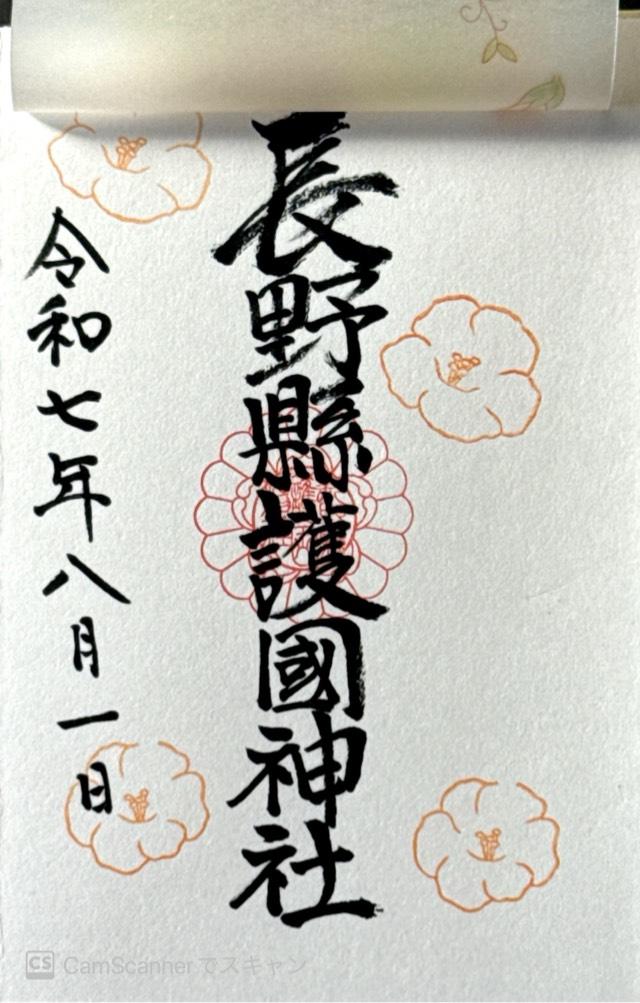 長野縣護國神社
令和七年八月一日
CS CamScannerでスキャン